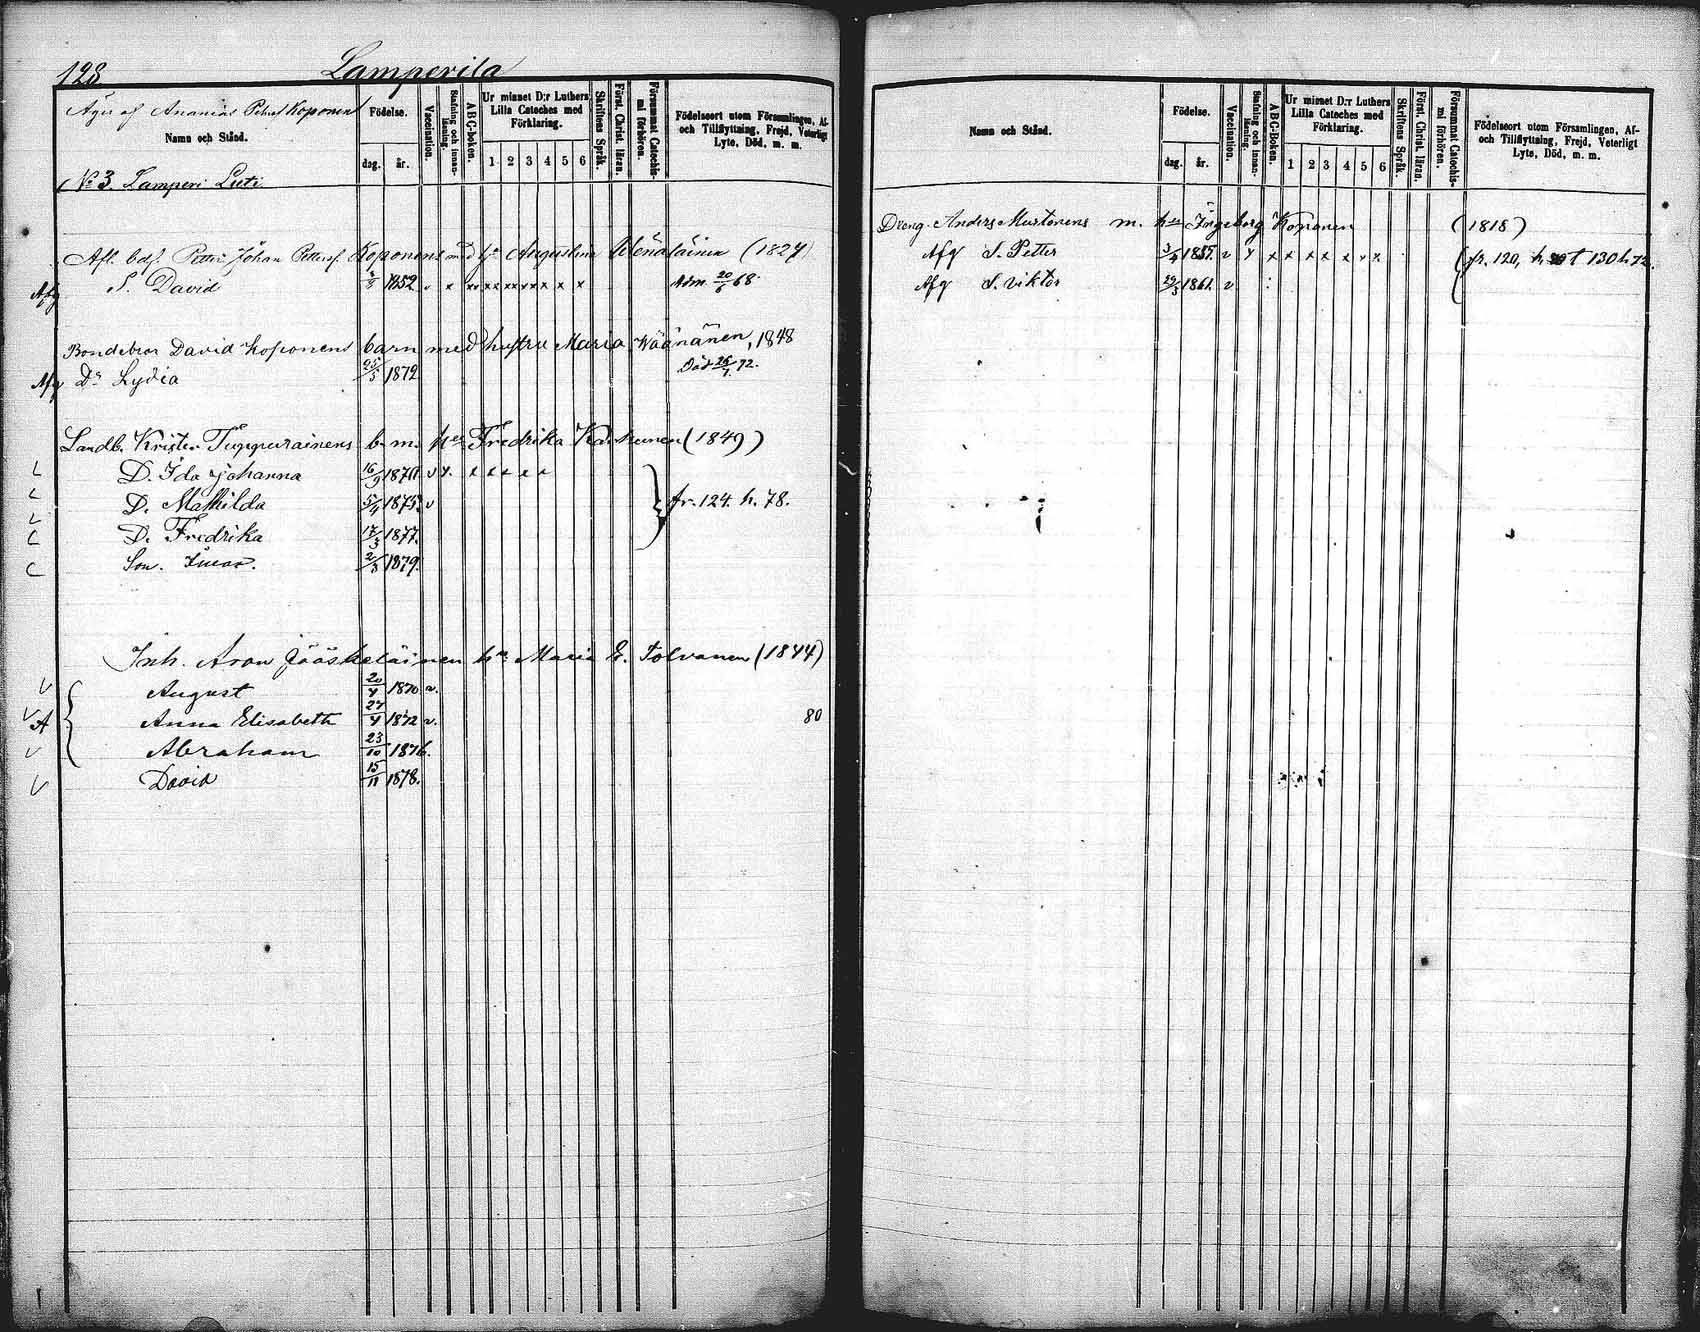 128 Lamperila
Äges af Ananias Petters Koponen
Namn och Stånd.
Födelse.
dag. år.
Vaccination.
Stafning och innanläsning.
ABC-boken.
Ur minnet D:r Luthers Lilla Cateches med Förklaring.
1 2 3 4 5 6
Skriftens Språk.
Först. Christ. läran.
Försummat Catechismi förhören.
Födelseort utom Församlingen, Af- och Tillflyttning, Frejd, Veterligt Lyte, Död, m. m.
No 3. Lamperi Luti
Afl. bds. Petter Johan Petterss. Koponens med h. Augustina Wenäläinen (1827)
Afg S. David 1852 v x xx xx xx x x x x Adm. 20/6 68
Bondebror David Koponens barn med hustru Maria Wäänänen, 1848
Afg Dr Lydia 25/5 1872 Död 26/7 72.
Landb. Krister Tuppurainens b. m. hu Fredrika Karhunen (1849)
D. Ida Johanna 16/9 1870 v x. x x x x x
D. Mathilda 1875. v fr. 124. h. 78.
D. Fredrika 17/3 1877.
Son. 2/8 1879.
Inh. Aron Jääskeläinen hu Maria E. Tolvanen (1844)
v August 20/4 1870 v.
v A Anna Elisabeth 27/4 1872 v. 80
v Abraham 23/10 1876.
v David 15/11 1878.
Namn och Stånd.
Födelse.
dag. år.
Vaccination.
Stafning och innanläsning.
ABC-boken.
Ur minnet D:r Luthers Lilla Cateches med Förklaring.
1 2 3 4 5 6
Skriftens Språk.
Först. Christ. läran.
Försummat Catechismi förhören.
Födelseort utom Församlingen, Af- och Tillflyttning, Frejd, Veterligt Lyte, Död, m. m.
Dreng. Anders Mustonens m. hu Ingeborg Koponen (1818)
Afg S. Petter 1857. v x x x x x x x x fr. 120, t 130 h. 72.
Afg S. Viktor 29/3 1861. v